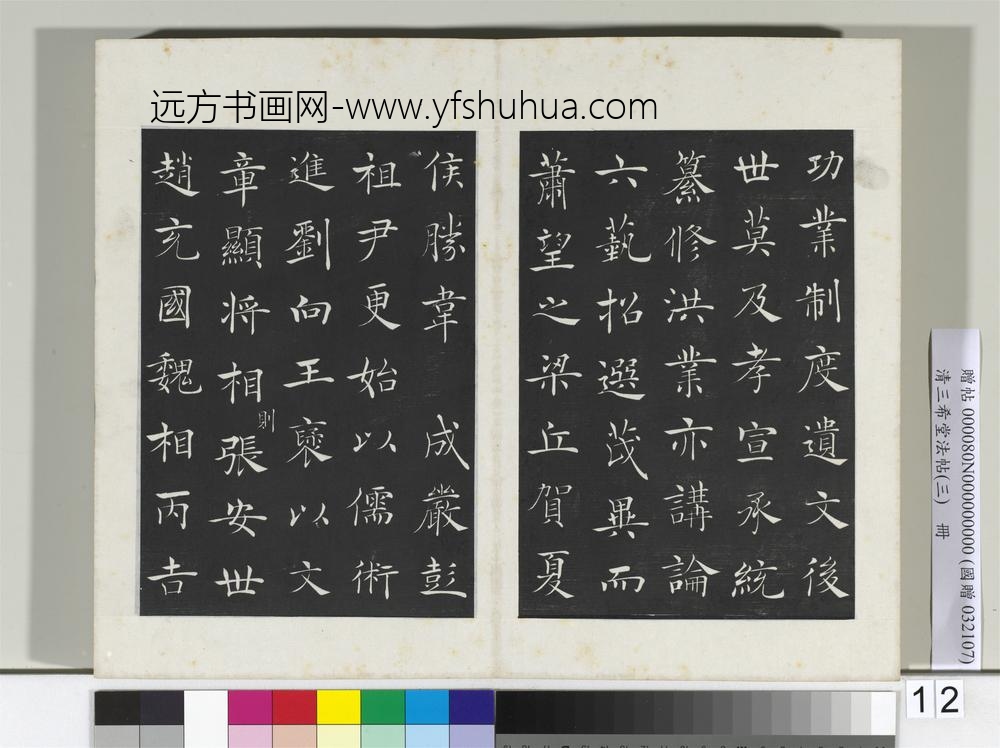 远方书画网-www.yfshuhua.com
功業制度遺文後
世莫及孝宣承統
纂修洪業亦講論
六藝招選茂異而
蕭望之梁丘賀夏
侯勝韋 成嚴彭
祖尹更始以儒術
進劉向王褒以文
章顯將相則張安世
趙充國魏相丙吉
贈帖 000080N000000000 (國贈 032107)
清三希堂法帖(三) 冊
12